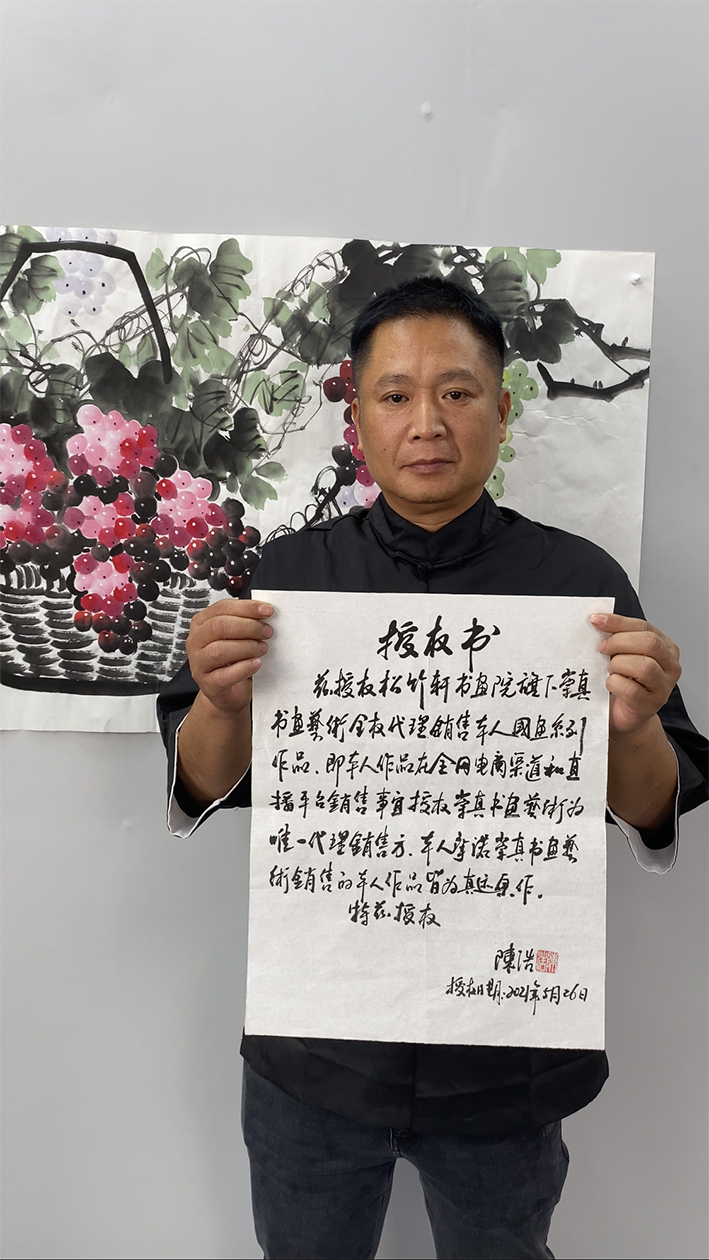 授权书
兹授权松竹轩书画院旗下崇真
书画藝術全权代理銷售本人國画系列
作品、即本人作品在全网电商渠道和直
播平台銷售事宜授权崇真书画藝術为
唯一代理銷售方、本人承诺崇真书画藝
術銷售的本人作品皆为真迹原作。
特兹授权
陳浩
授权日期:2021年5月26日